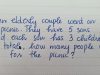 An elderly couple went on
picnic. They have 5 sons
and each son has 3 children
total, how many people
for the picnic?